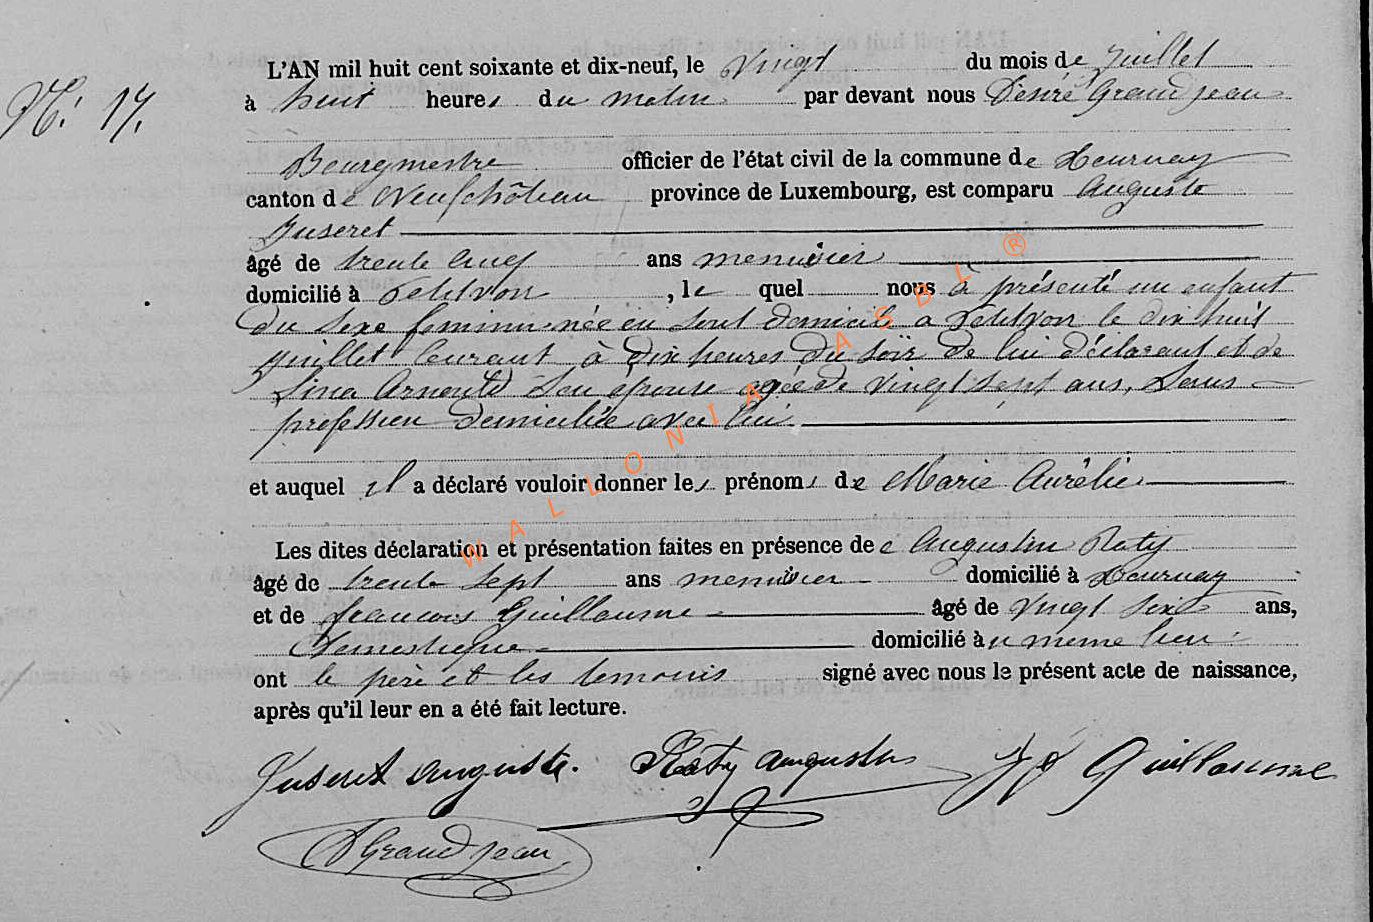 N°. 17.
L'AN mil huit cent soixante et dix-neuf, le Vingt du mois de Juillet
à huit heures du matin par devant nous Désiré Grandjean
Bourgmestre officier de l'état civil de la commune de Tournay
canton de Neufchâteau province de Luxembourg, est comparu Auguste
Juseret
âgé de trente cinq ans menuisier
domicilié à Petitvoir, le quel nous à présenté un enfant
du sexe feminin née en sont domicile a Petitvoir le dix huit
juillet courant à dix heures du soir de lui déclarant et de
Lina Arnould son épouse agée de vingt sept ans, Sans
profession domiciliée avec lui
et auquel il a déclaré vouloir donner les prénoms de Marie Aurélie
Les dites déclaration et présentation faites en présence de Augustin Raty
âgé de trente sept ans menuisier domicilié à Tournay
et de francois Guillaume âgé de vingt six ans,
Domestique domicilié au meme lieu
ont le père et les temoins signé avec nous le présent acte de naissance,
après qu'il leur en a été fait lecture.
Juseret auguste. Raty augustin Guillaume
D Grandjean
WALLONIA ASBL ®